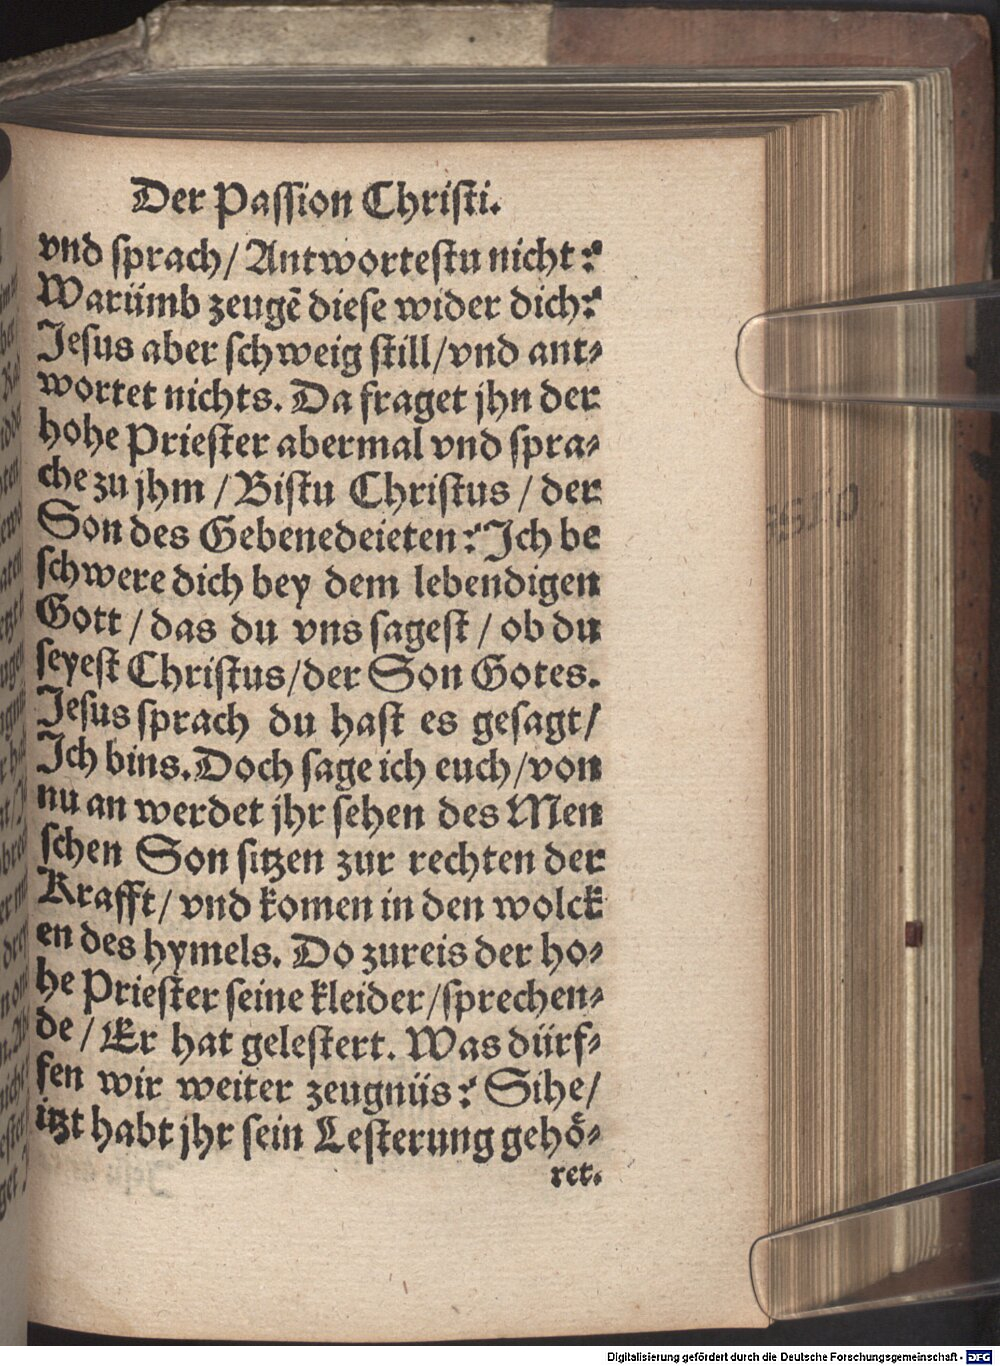 Der Passion Christi.
vnd sprach/ Antwortestu nicht?
Warümb zeugẽ diese wider dich?
Jesus aber schweig still/vnd ant⸗
wortet nichts. Da fraget jhn der
hohe Priester abermal vnd spra⸗
che zu jhm / Bistu Christus / der
Son des Gebenedeieten? Ich be
schwere dich bey dem lebendigen
Gott / das du vns sagest / ob du
seyest Christus/der Son Gotes.
Jesus sprach du hast es gesagt/
Ich bins. Doch sage ich euch/von
nu an werdet jhr sehen des Men
schen Son sitzen zur rechten der
Krafft/ vnd komen in den wolck
en des hymels. Do zureis der ho⸗
he Priester seine kleider/sprechen⸗
de / Er hat gelestert. Was dürf⸗
fen wir weiter zeugnüs? Sihe/
itzt habt jhr sein Lesterung gehoͤ⸗
ret.
Digitalisierung gefördert durch die Deutsche Forschungsgemeinschaft - DFG